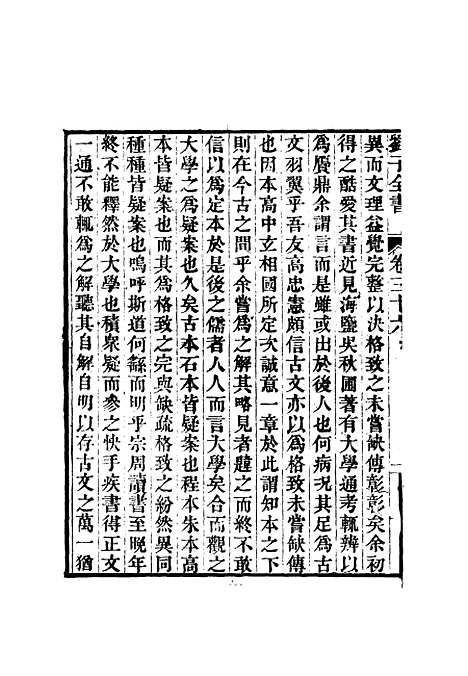 劉子全書
卷三十六
異而文理益覺完整以決格致之未嘗缺傳彰彰矣余初
得之酷愛其書近見海鹽吳秋圃著有大學通考輒辨以
爲贗鼎余謂言而是雖或出於後人也何病況其足爲古
文羽翼乎吾友高忠憲頗信古文亦以爲格致未嘗缺傳
也因本高中玄相國所定次誠意一章於此謂知本之下
則在今古之間乎余嘗爲之解其略見者韙之而終不敢
信以爲定本於是後之儒者人人而言大學矣合而觀之
大學之爲疑案也久矣古本石本皆疑案也程本朱本高
本皆疑案也而其爲格致之完與缺疏格致之紛然異同
種種皆疑案也嗚呼斯道何繇而明乎宗周讀書至晚年
終不能釋然於大學也積衆疑而參之快手疾書得正文
一通不敢輒爲之解聽其自解自明以存古文之萬一猶